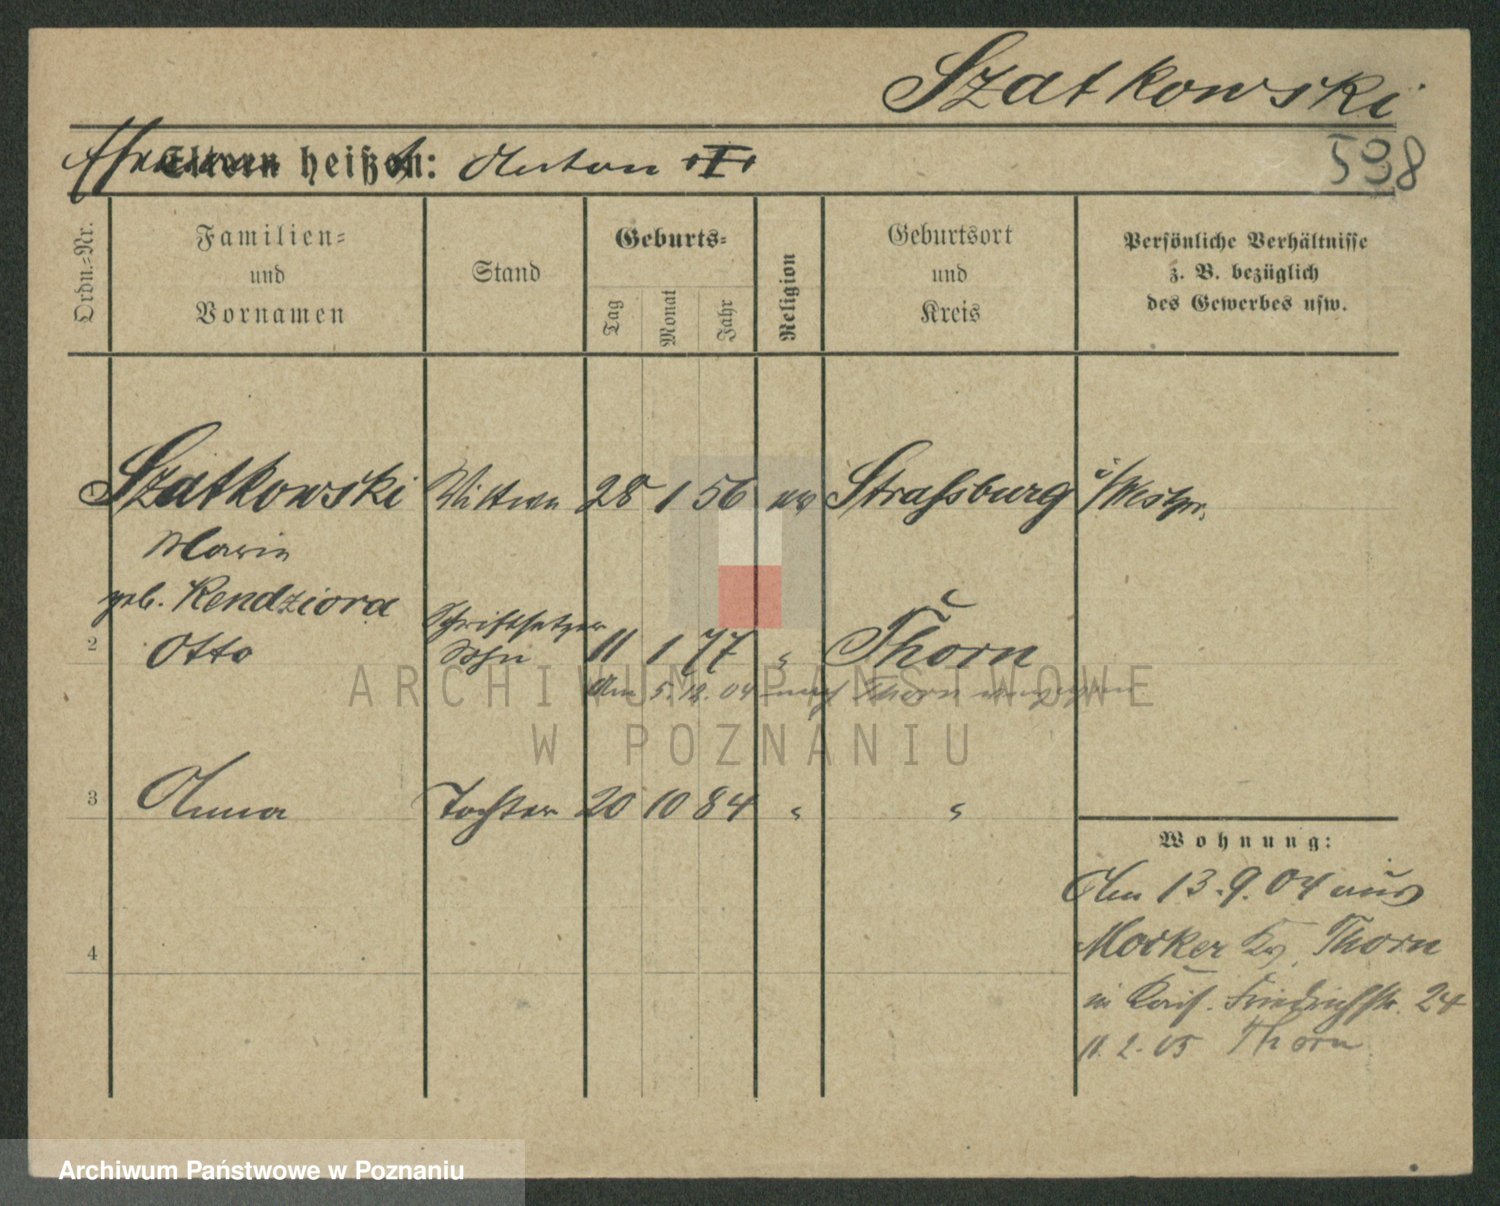 Szatkowski
598
Ehemann heißt: Anton †
Ordn.-Nr.
Familien-
und
Vornamen
Stand
Geburts-
Tag
Monat
Jahr
Religion
Geburtsort
und
Kreis
Persönliche Verhältnisse
z. B. bezüglich
des Gewerbes usw.
Szatkowski Wittwe 28 1 56 Strafsburg i/Westpr.
Marie
geb. Rendziora
Schriftsetzer
2 Otto Sohn 11 1 77 " Thorn
Am 5.12.04 nach Thorn
3 Anna Tochter 20 10 84 " "
Wohnung:
Am 13.9.04 aus
Mocker Kr. Thorn
in Kais. Friedrichstr. 24
11.2.05 Thorn
4
ARCHIWUM PAŃSTWOWE
W POZNANIU
Archiwum Państwowe w Poznaniu